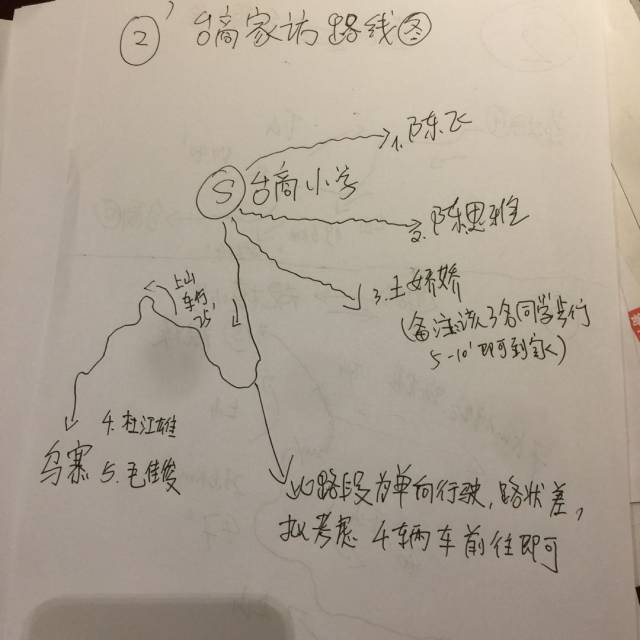 ② 台商家访路线图
1. 陈飞
Ⓢ 台商小学
2. 陈思
3. 王娇娇
(备注:该3名同学步行
5-10'即可到家)
上山
车行
4. 杜江雄
乌寨 5. 毛佳俊
此路段为单向行驶,路状差,
拟考虑 4辆车前往即可